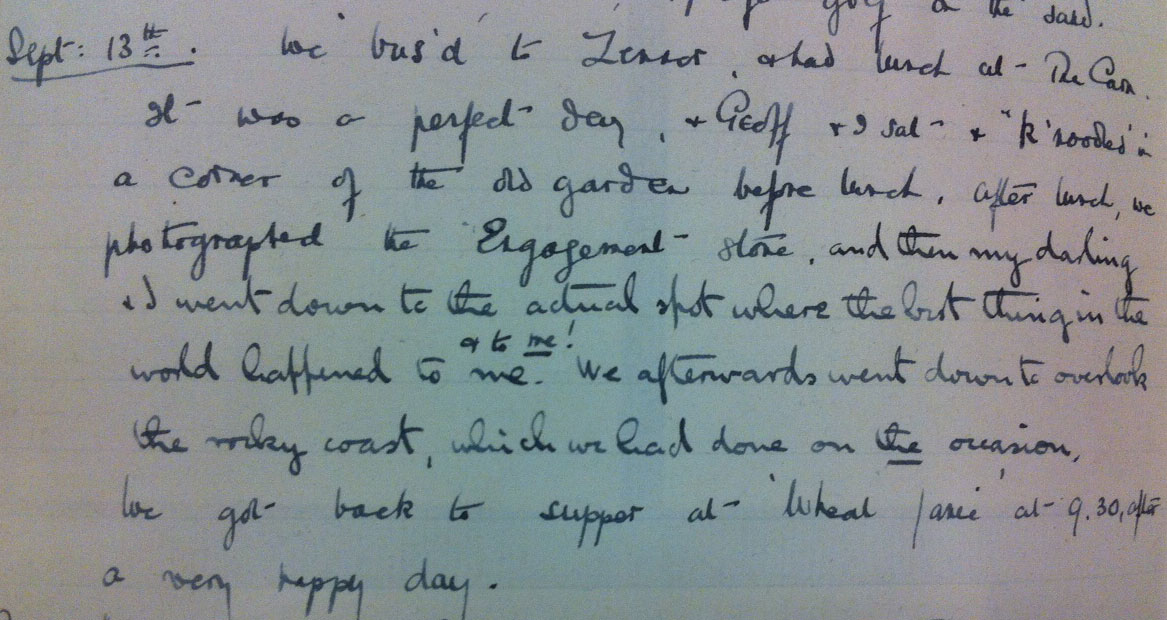 golf on the sand.
Sept: 13th. We bus'd to Zennor, & had lunch at The Carn.
It was a perfect day, & Geoff & I sat & "K'nooded' in
a corner of the old garden before lunch. After lunch, we
photographed the Engagement stone, and then my darling
& I went down to the actual spot where the best thing in the
& to me!
world happened to me. We afterwards went down to overlook
the rocky coast, which we had done on the occasion,
We got back to supper at 'Wheal Janie' at 9.30, after
a very happy day.